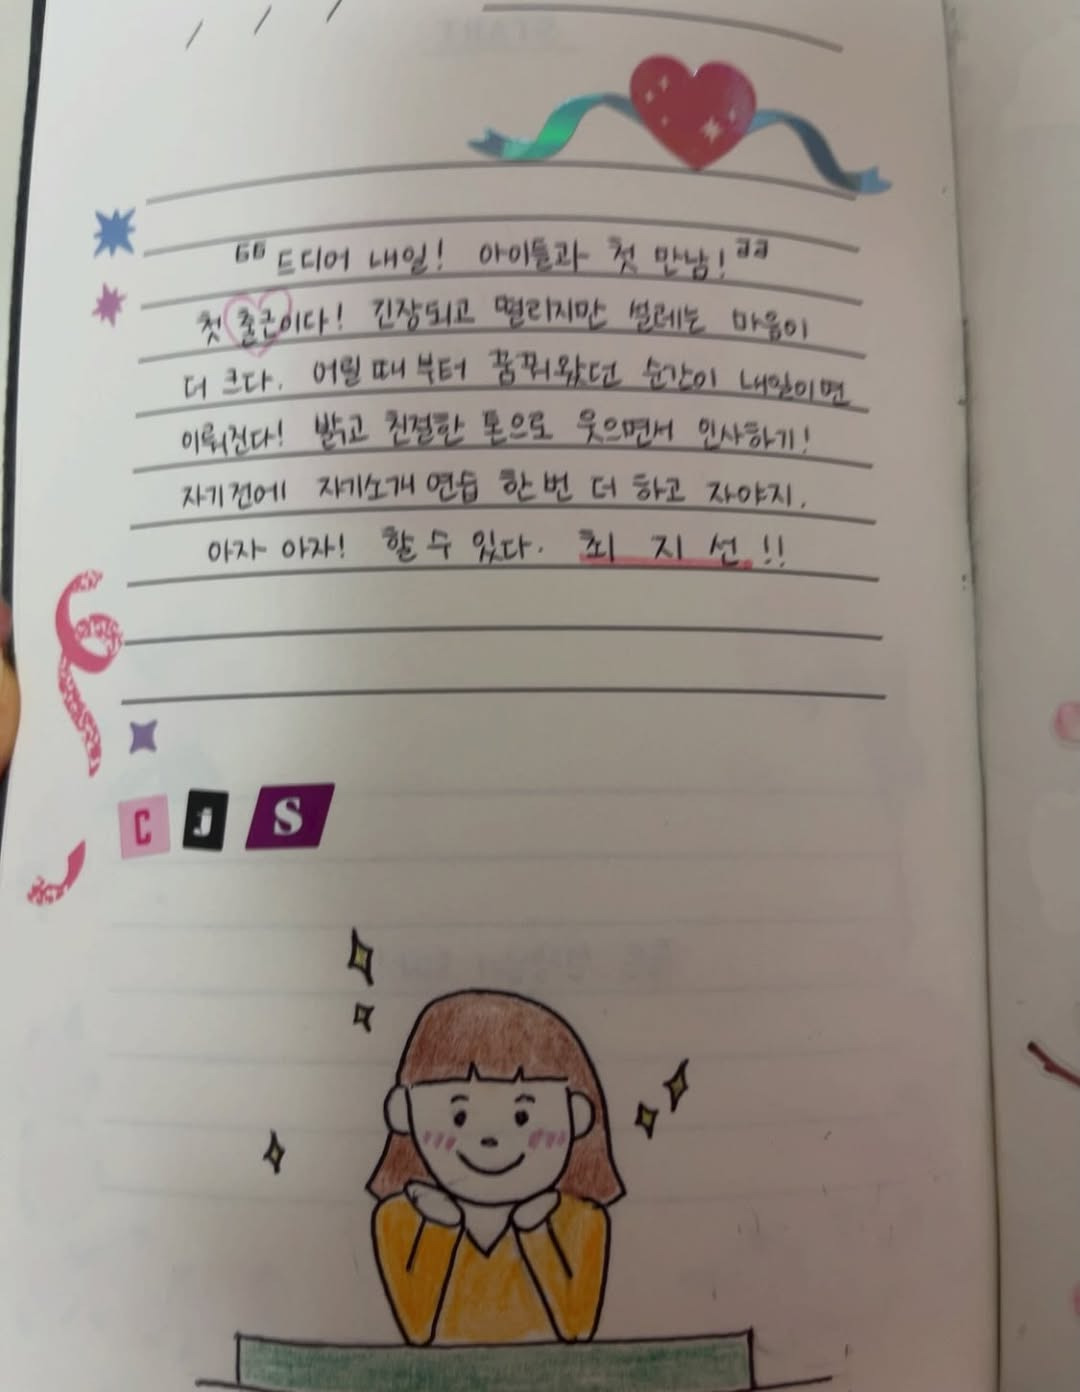 “ 드디어 내일! 아이들과 첫 만남! ”
첫 출근이다! 긴장되고 떨리지만 설레는 마음이
더 크다. 어릴 때 부터 꿈꿔왔던 순간이 내일이면
이뤄진다! 밝고 친절한 톤으로 웃으면서 인사하기!
자기전에 자기소개 연습 한 번 더 하고 자야지.
아자 아자! 할 수 있다. 최 지 선 !!
C J S